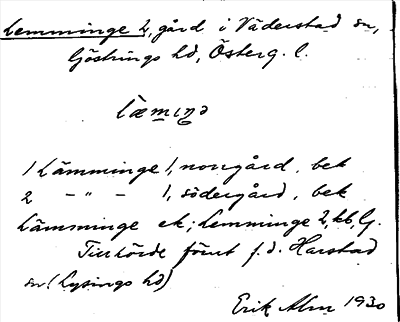 Lemminge 2, gård i Väderstad sn,
Göstrings hd, Österg. l.
læminɔ
1 Lämminge 1, norrgård, bek
2 – " – 1, södergård, bek
Lämminge ek; Lemminge 2, kb, G.
Tillhörde förut f.d. Harstad
sn (Lysings hd)
Erik Alm 1930